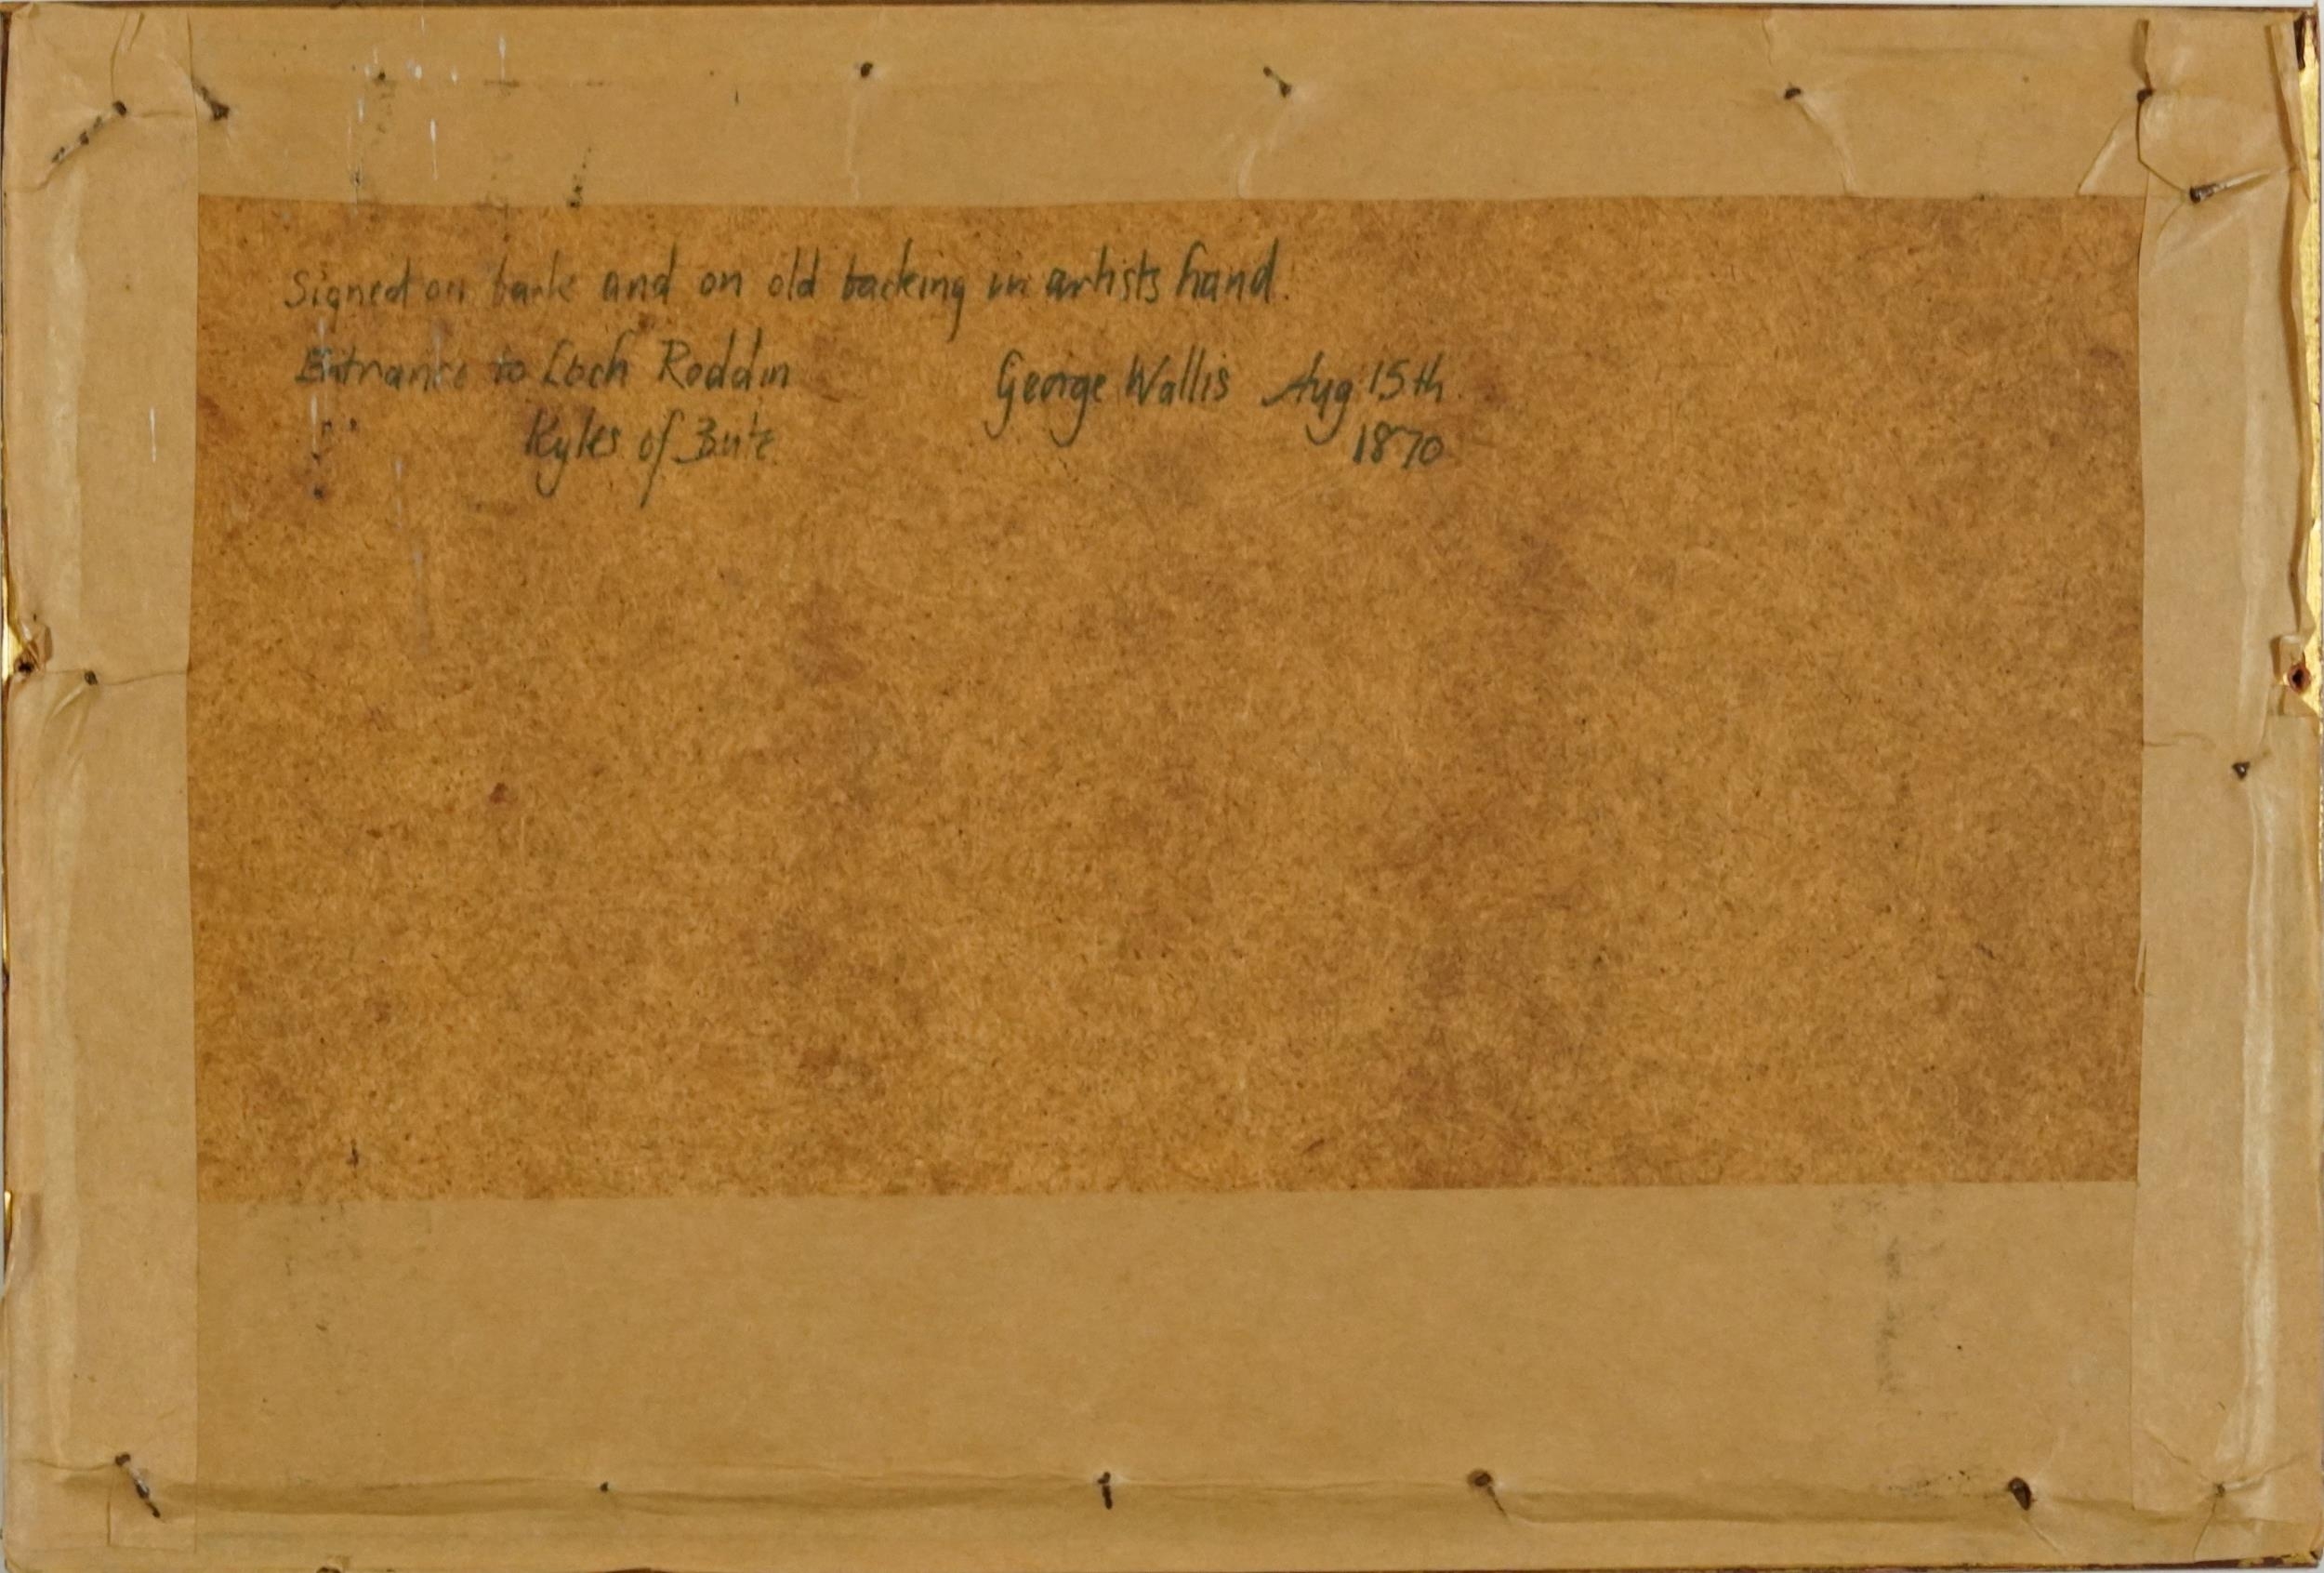 Signed on back and on old backing in artists hand.
Entrance to Loch Roddin George Wallis Aug 15th
Kyles of Bute 1870